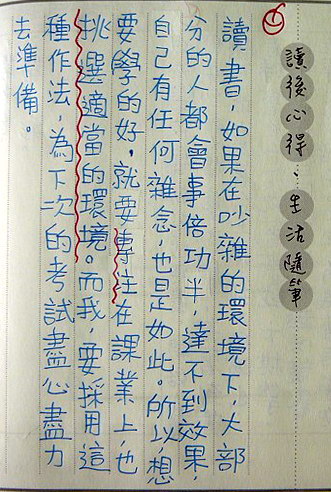 讀後心得:生活隨筆
讀書,如果在吵雜的環境下,大部
分的人都會事倍功半,達不到效果,
自己有任何雜念,也是如此。所以,想
要學的好,就要專注在課業上,也
挑選適當的環境。而我,要採用這
種作法,為下次的考試盡心盡力
去準備。